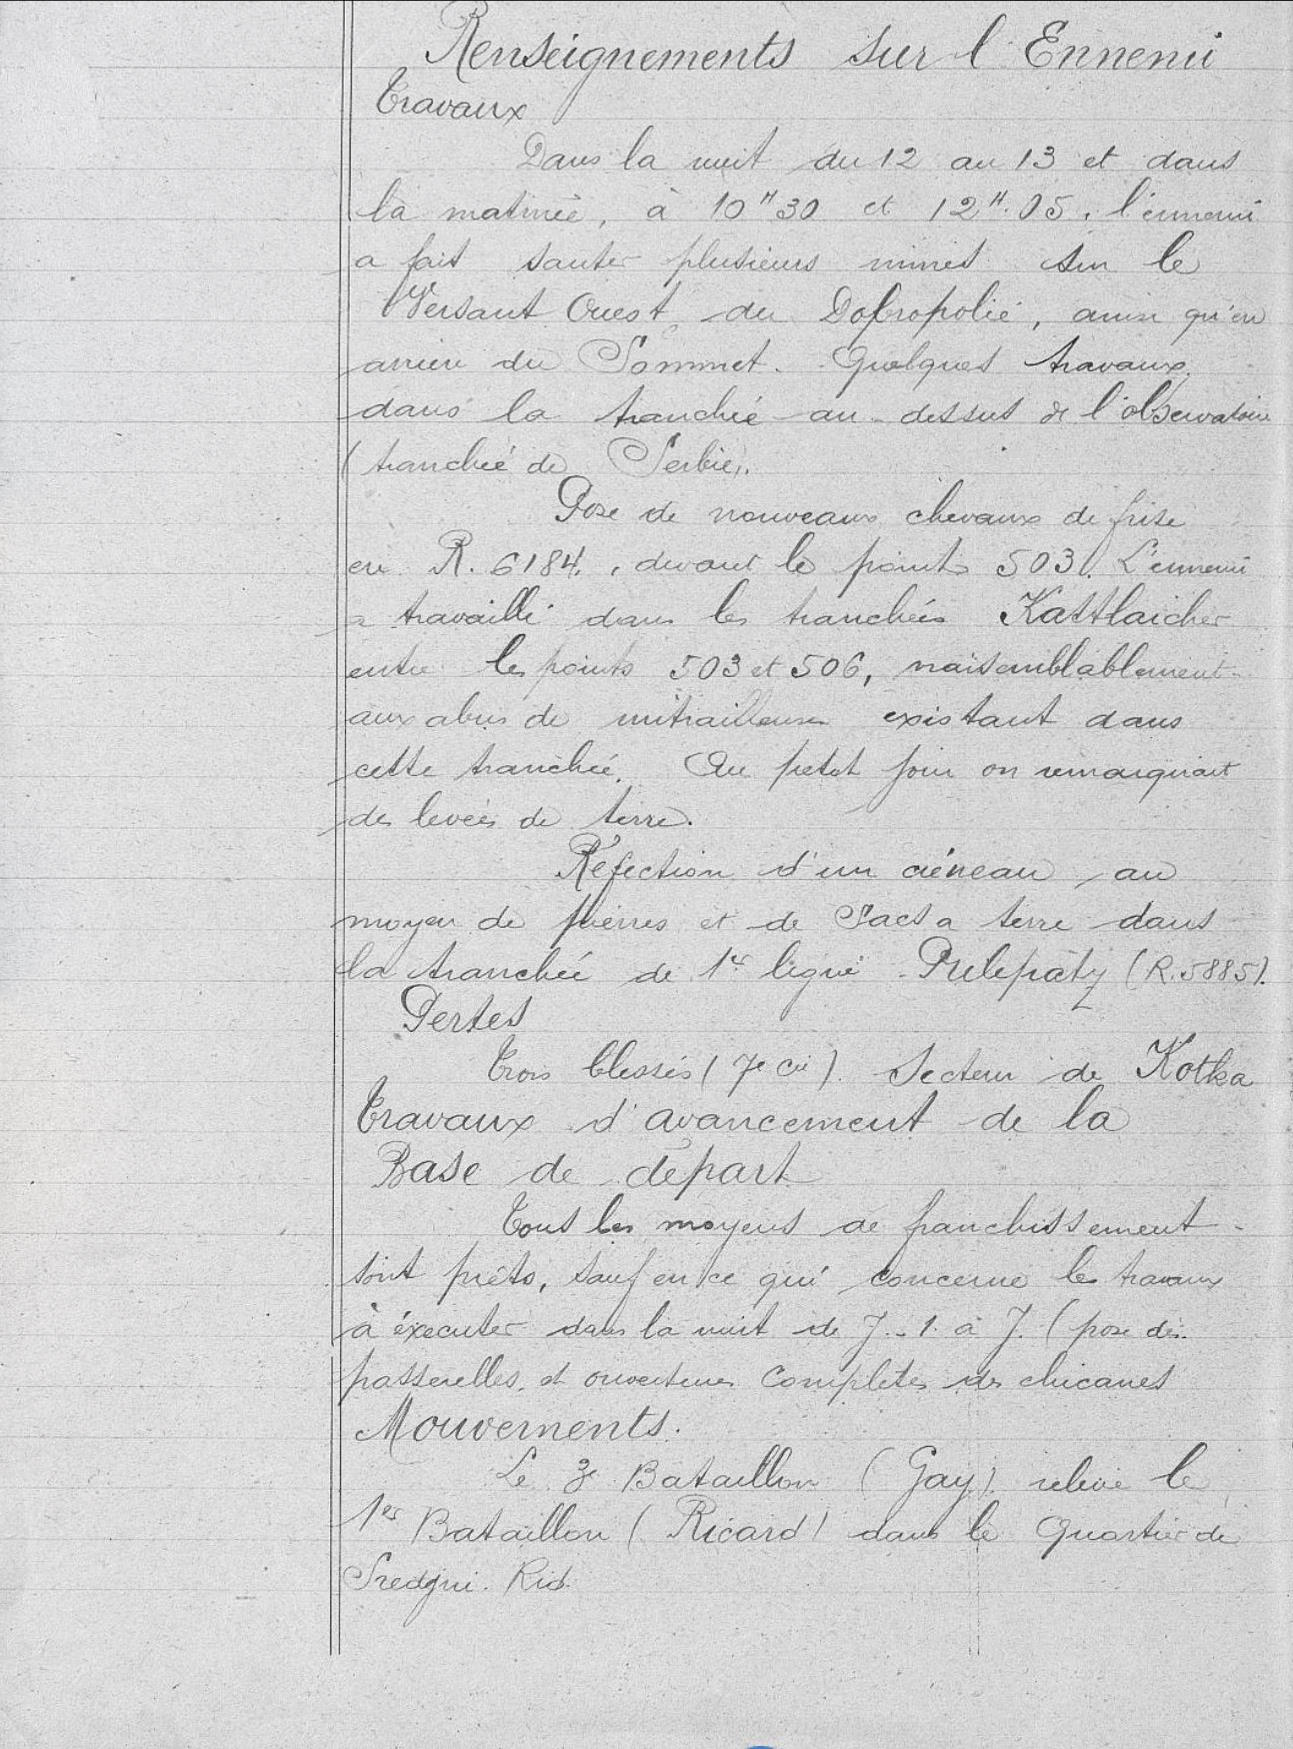 Renseignements sur l'Ennemi
Travaux
Dans la nuit du 12 au 13 et dans
la matinée, à 10H30 et 12H.05, l'ennemi
a fait sauter plusieurs mines sur le
Versant Ouest du Dobropolié, ainsi qu'en
arrière du Sommet. Quelques travaux
dans la tranchée au-dessus de l'observatoire
(tranchée de Serbie).
Pose de nouveaux chevaux de frise
en R. 6184, devant le point 503. L'ennemi
a travaillé dans les tranchées Kattlaicher
entre les points 503 et 506, vraisemblablement
aux abris de mitrailleuses existant dans
cette tranchée. Au petit jour on remarquait
des levées de terre.
Réfection d'un créneau au
moyen de pierres et de Sacs a terre dans
la tranchée de 1er ligne Prilepaty (R.5885).
Pertes
Trois blessés (7e Cie). Secteur de Kotka
Travaux d'avancement de la
Base de départ
Tous les moyens de franchissement
sont prêts, sauf en ce qui concerne les travaux
à éxecuter dans la nuit de J.-1. à J. (pose des
passerelles, et ouvertures complètes des chicanes
Mouvements.
Le 3e Bataillon (Gay) relève le
1er Bataillon (Ricard) dans le Quartier de
Sredgni. Rid.